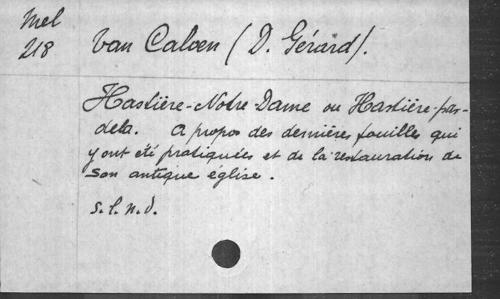 Mel
218
van Caloen (D. Gérard).
Hastière-Notre Dame ou Hastière-par-
dela. A propos des dernières fouilles qui
y ont été pratiquées et de la restauration de
son antique église.
s.l.n.d.